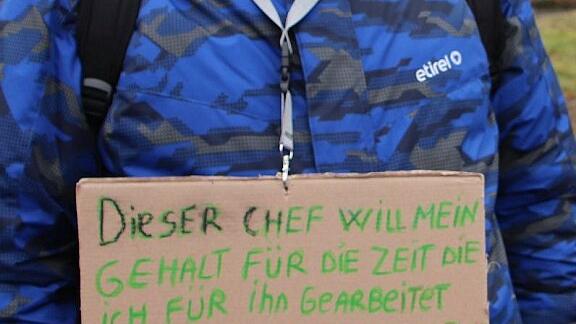 etirel
DiESER CHEF WILL MEIN
GEHALT FÜR DIE ZEIT DIE
ICH FÜR ihn GEARBEITET